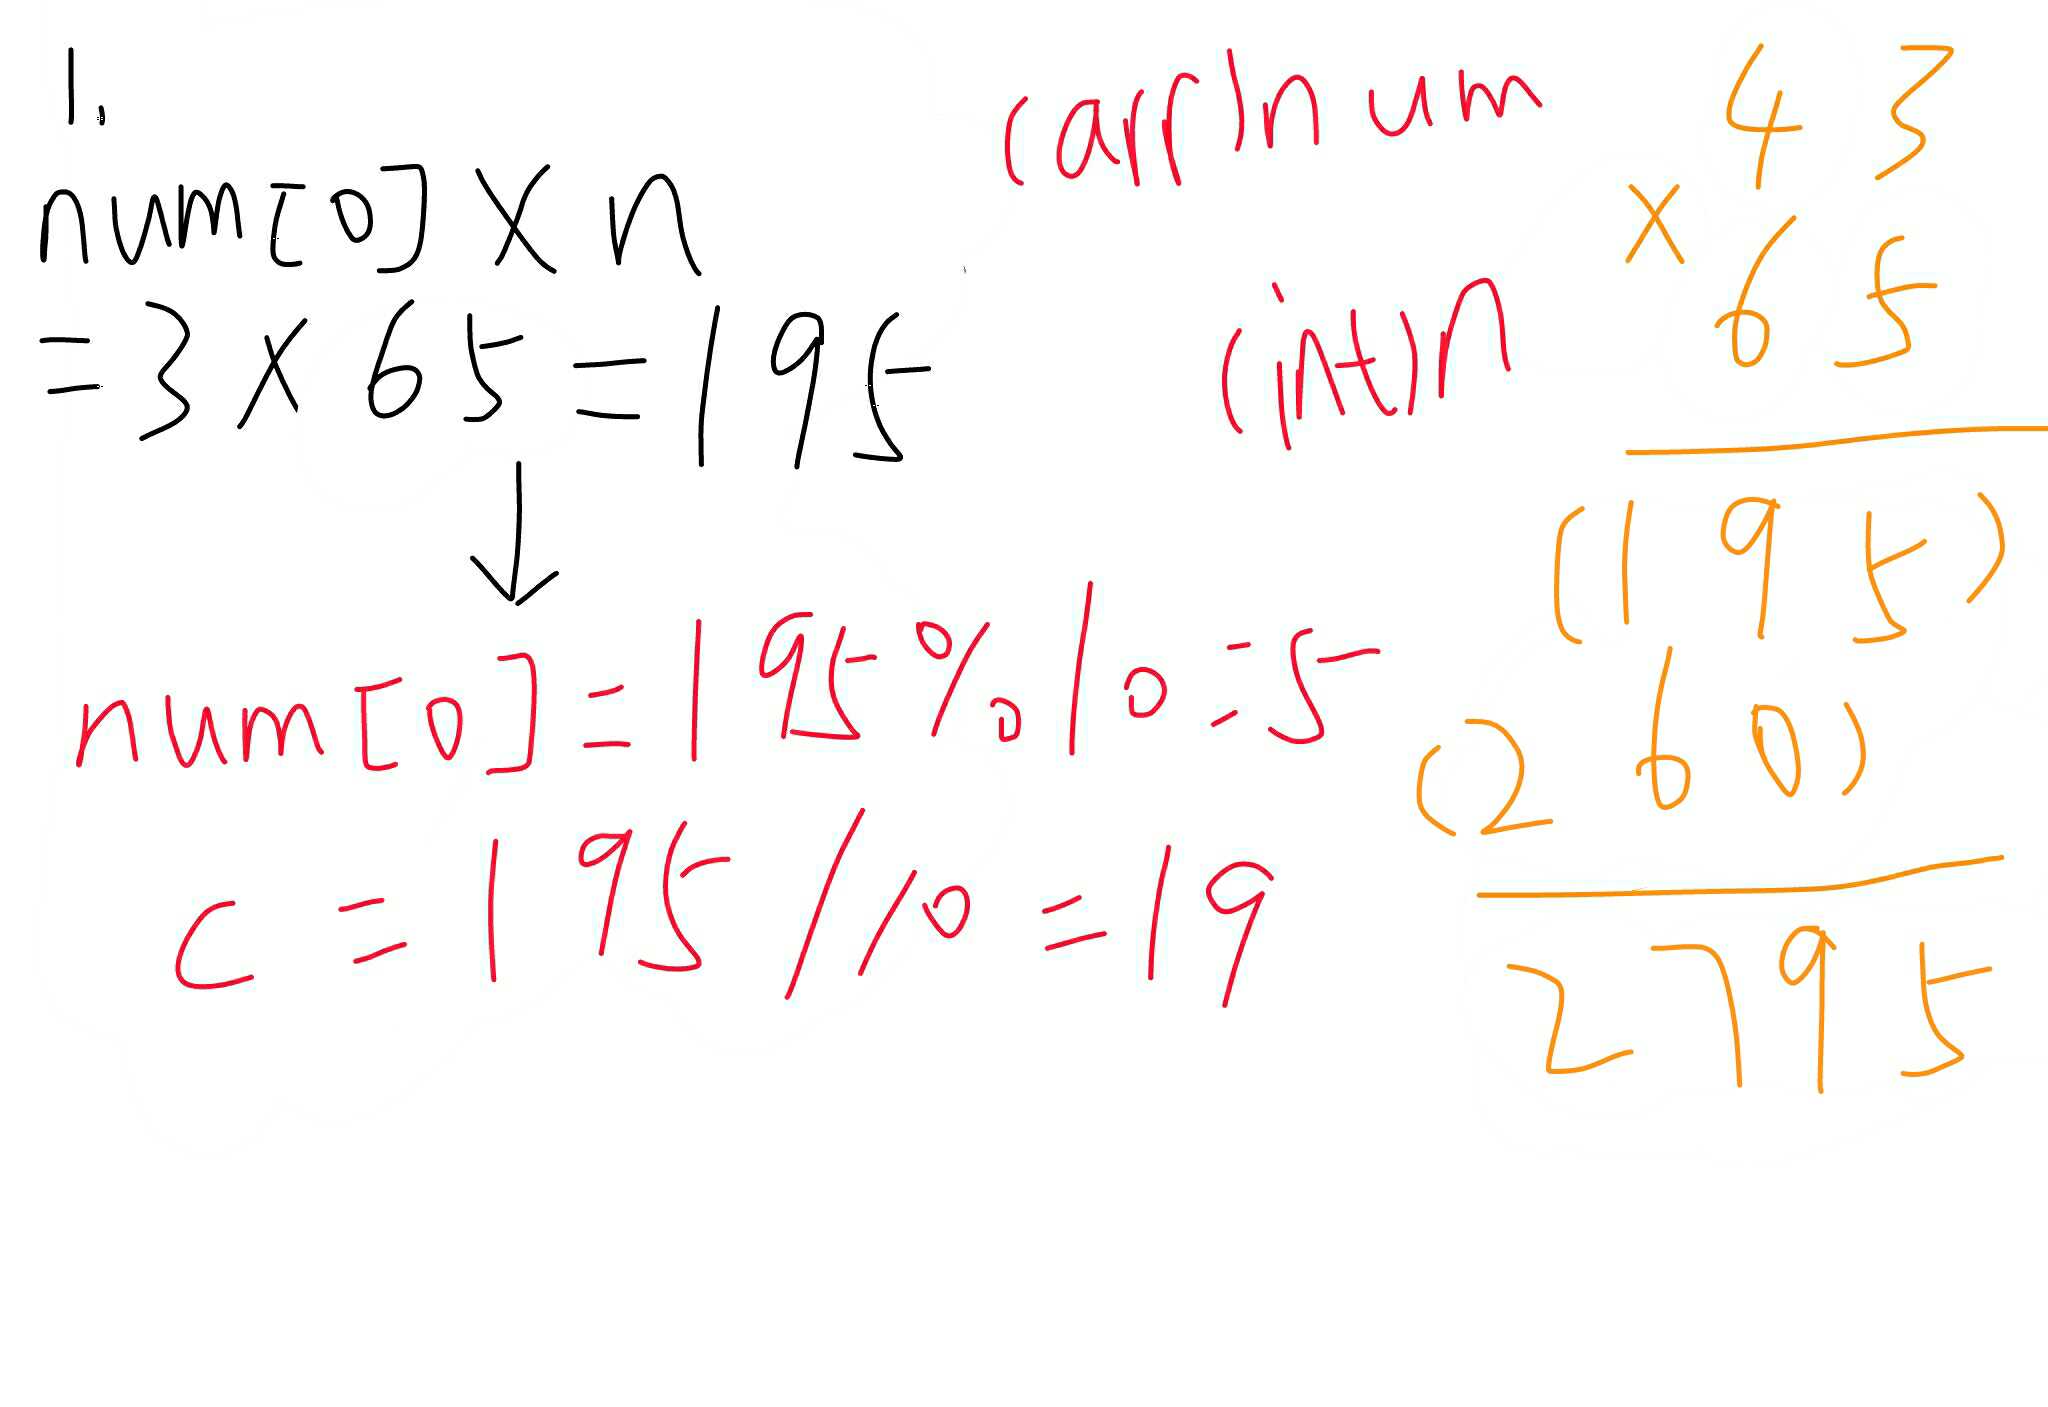 1.
num[0] x n
= 3 x 65 = 195
num[0] = 195 % 10 = 5
c = 195 / 10 = 19
(arr)num
(int)n
43
x 65
(195)
(260)
2795